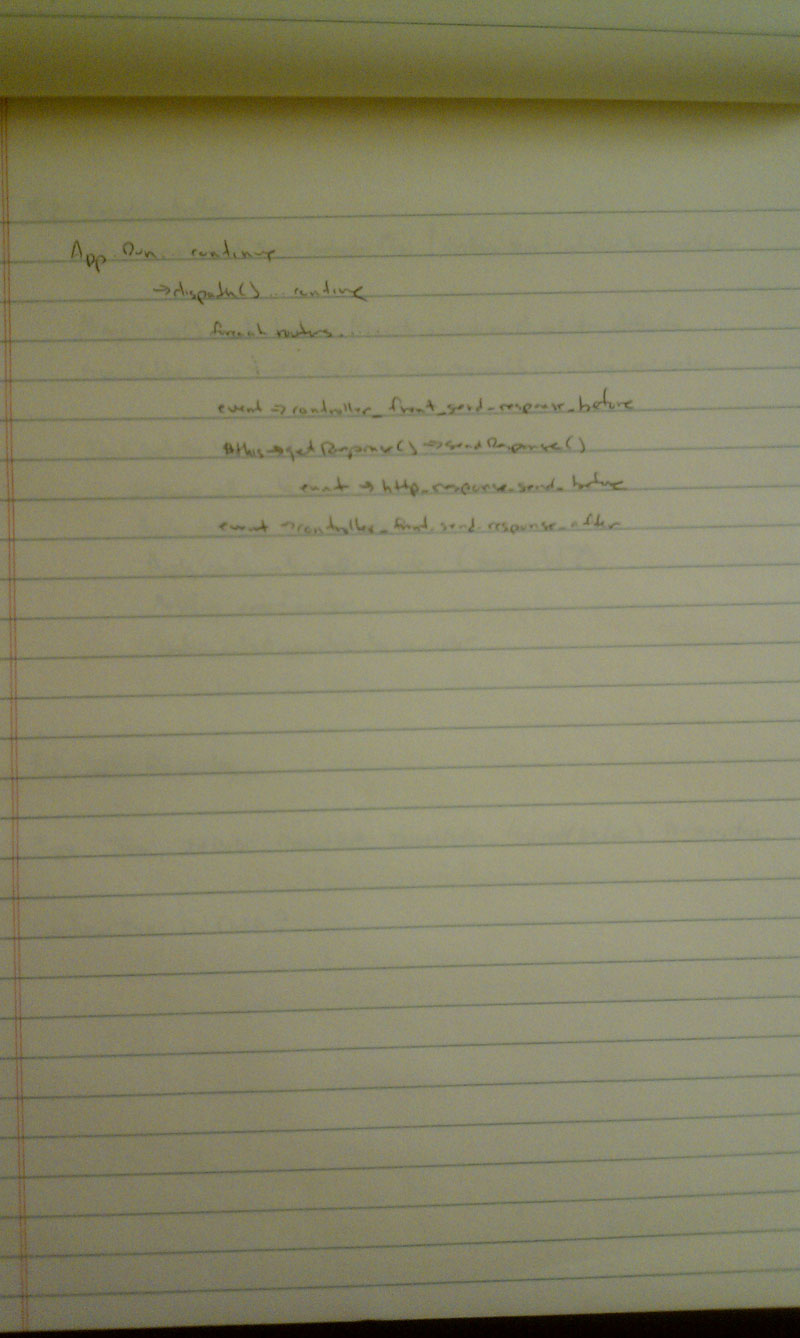 App Run... runtime
→dispatch()... runtime
foreach routers.....
event → controller_front_send_response_before
$this→getResponse()→sendResponse()
event → http_response_send_before
event → controller_front_send_response_after